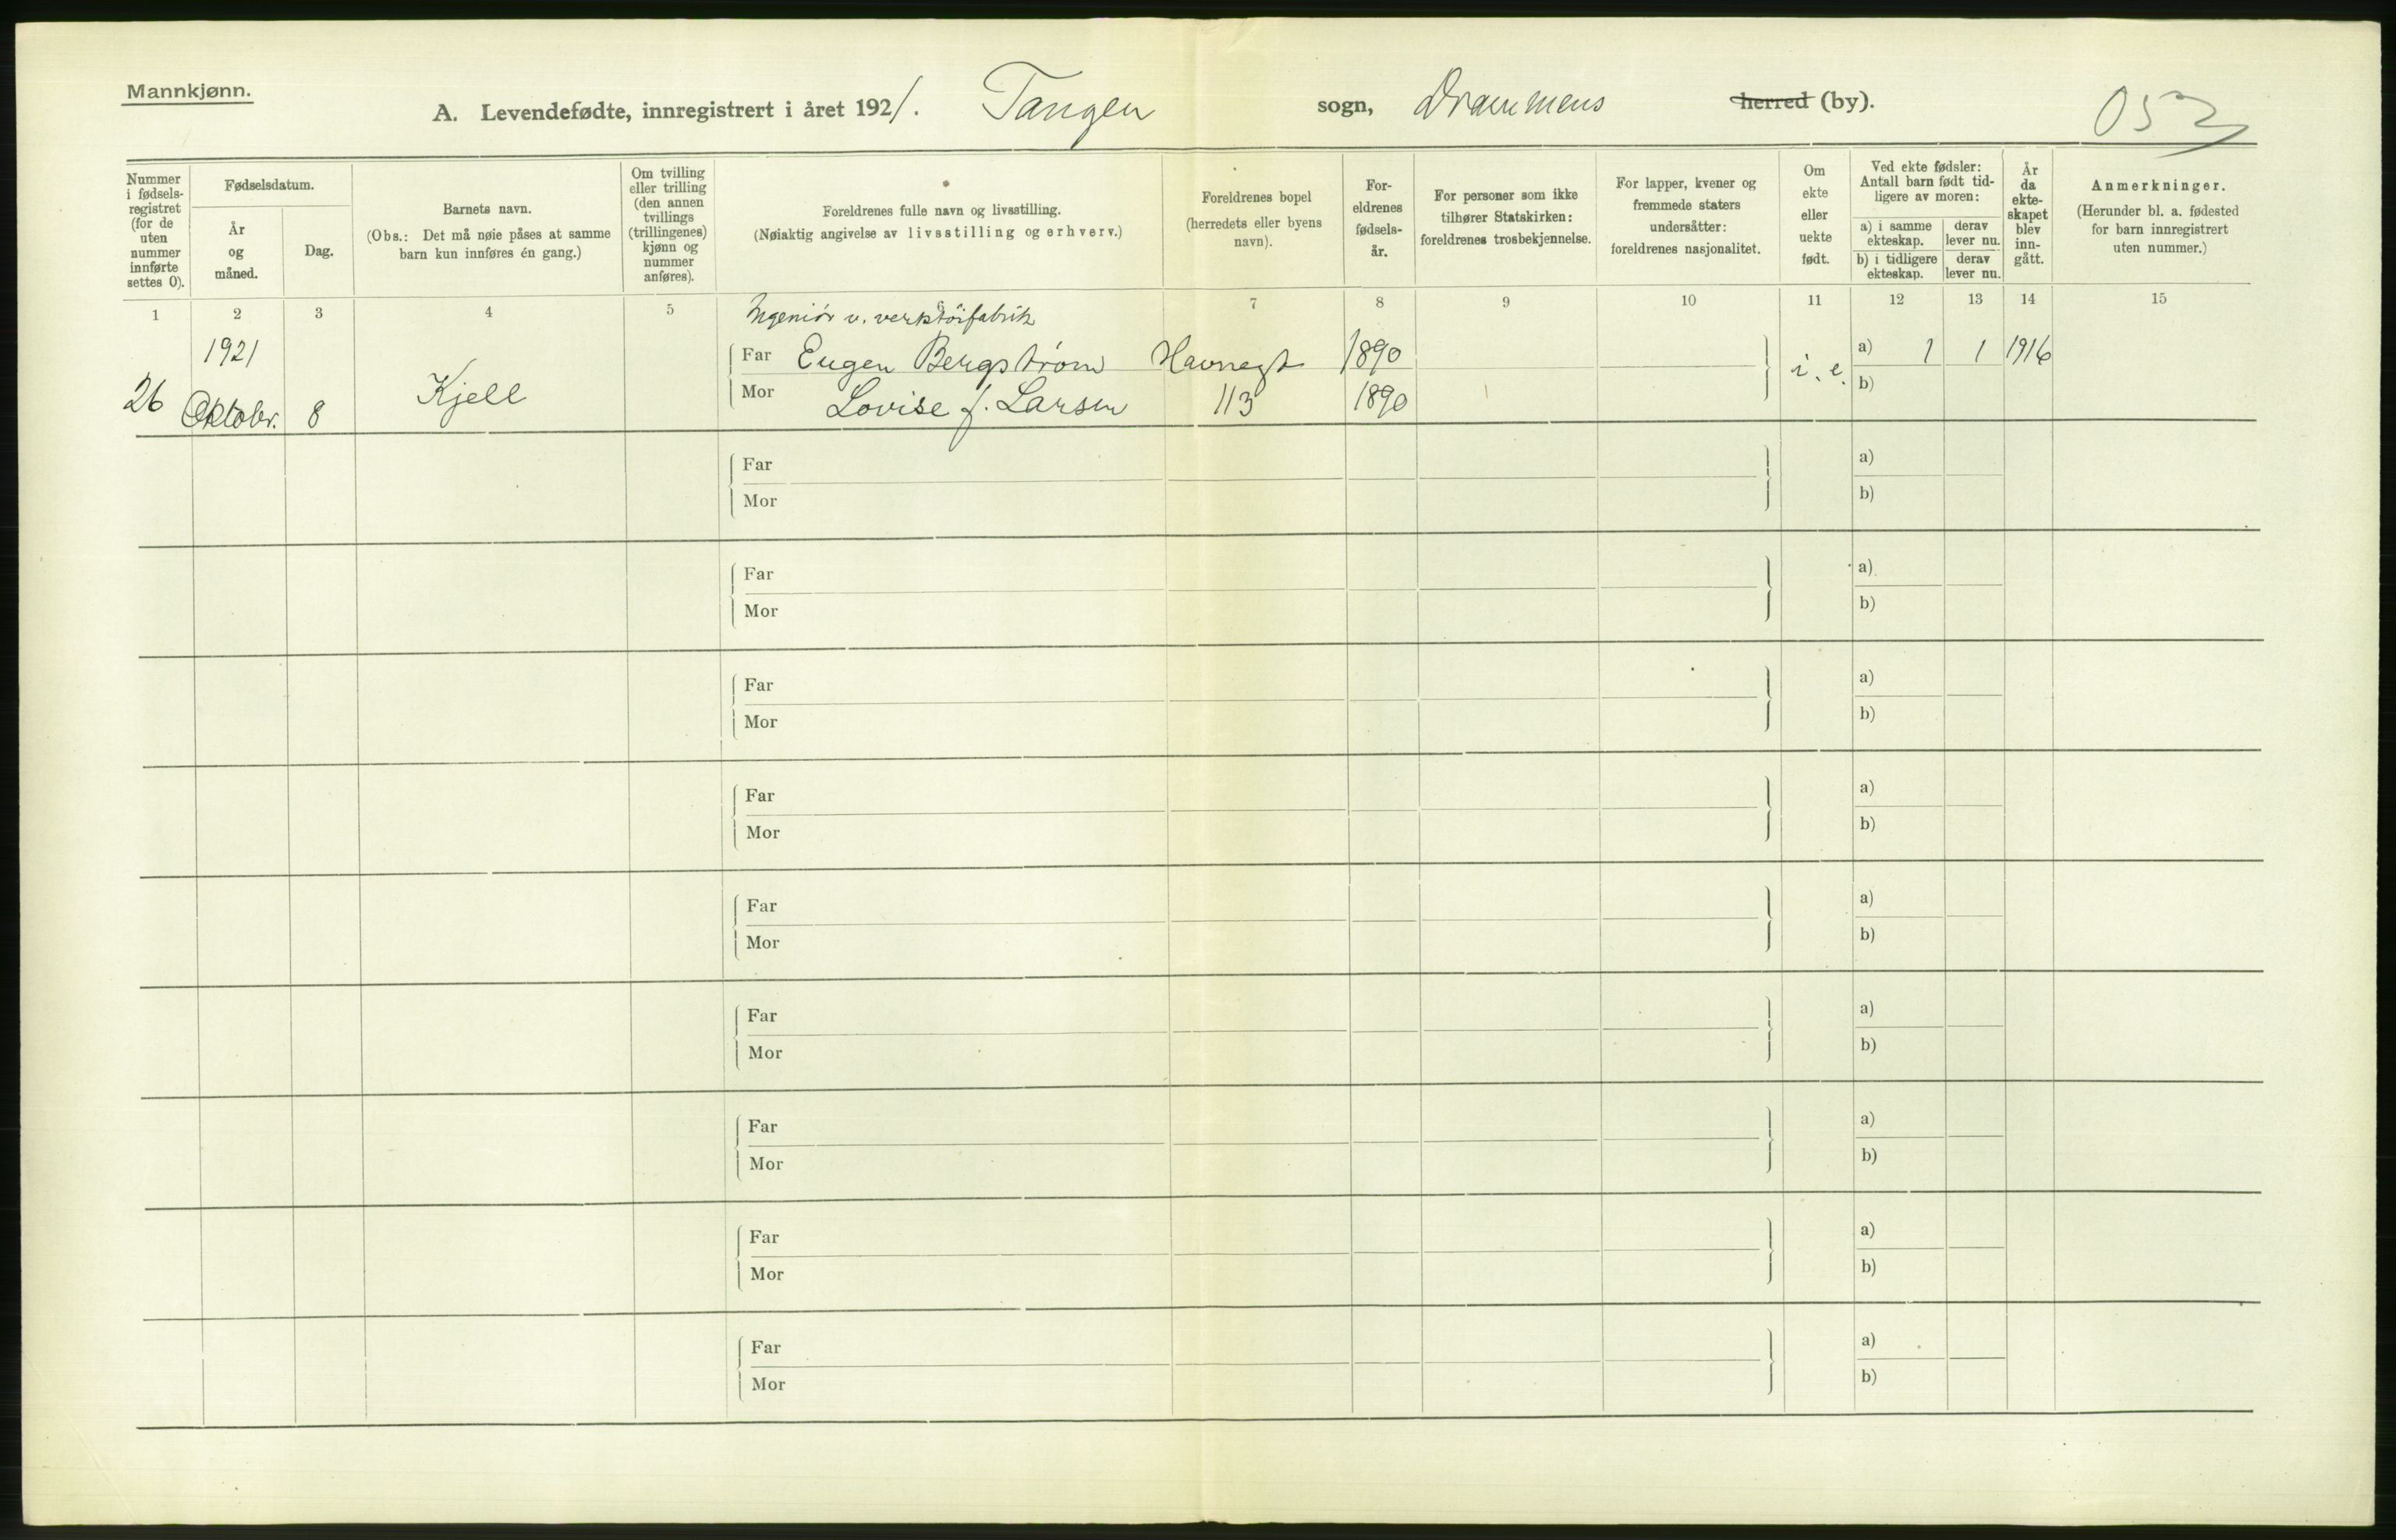 Mannkjønn.
A. Levendefødte, innregistrert i året 1921. Tangen sogn, Drammens herred (by). 053
Nummer i fødsels-registret (for de uten nummer innførte settes 0).
Fødselsdatum.
År og måned.
Dag.
Barnets navn.
(Obs.: Det må nøie påses at samme barn kun innføres én gang.)
Om tvilling eller trilling (den annen tvillings (trillingenes) kjønn og nummer anføres).
Foreldrenes fulle navn og livsstilling.
(Nøiaktig angivelse av livsstilling og erhverv.)
Foreldrenes bopel (herredets eller byens navn).
For-eldrenes fødsels-år.
For personer som ikke tilhører Statskirken: foreldrenes trosbekjennelse.
For lapper, kvener og fremmede staters undersåtter: foreldrenes nasjonalitet.
Om ekte eller uekte født.
Ved ekte fødsler: Antall barn født tid-ligere av moren:
a) i samme ekteskap.
derav lever nu.
b) i tidligere ekteskap.
derav lever nu.
År da ekte-skapet blev inn-gått.
Anmerkninger.
(Herunder bl. a. fødested for barn innregistrert uten nummer.)
1 2 3 4 5 7 8 9 10 11 12 13 14 15
Ingeniør v. verktøifabrik
1921 Far Eugen Bergstrøm Havnegt 1890 a) 1 1 1916
26 Oktobr. 8 Kjell Mor Lovise f. Larsen 113 1890 i. e. b)
Far a)
Mor b)
Far a)
Mor b)
Far a)
Mor b)
Far a)
Mor b)
Far a)
Mor b)
Far a)
Mor b)
Far a)
Mor b)
Far a)
Mor b)
Far a)
Mor b)